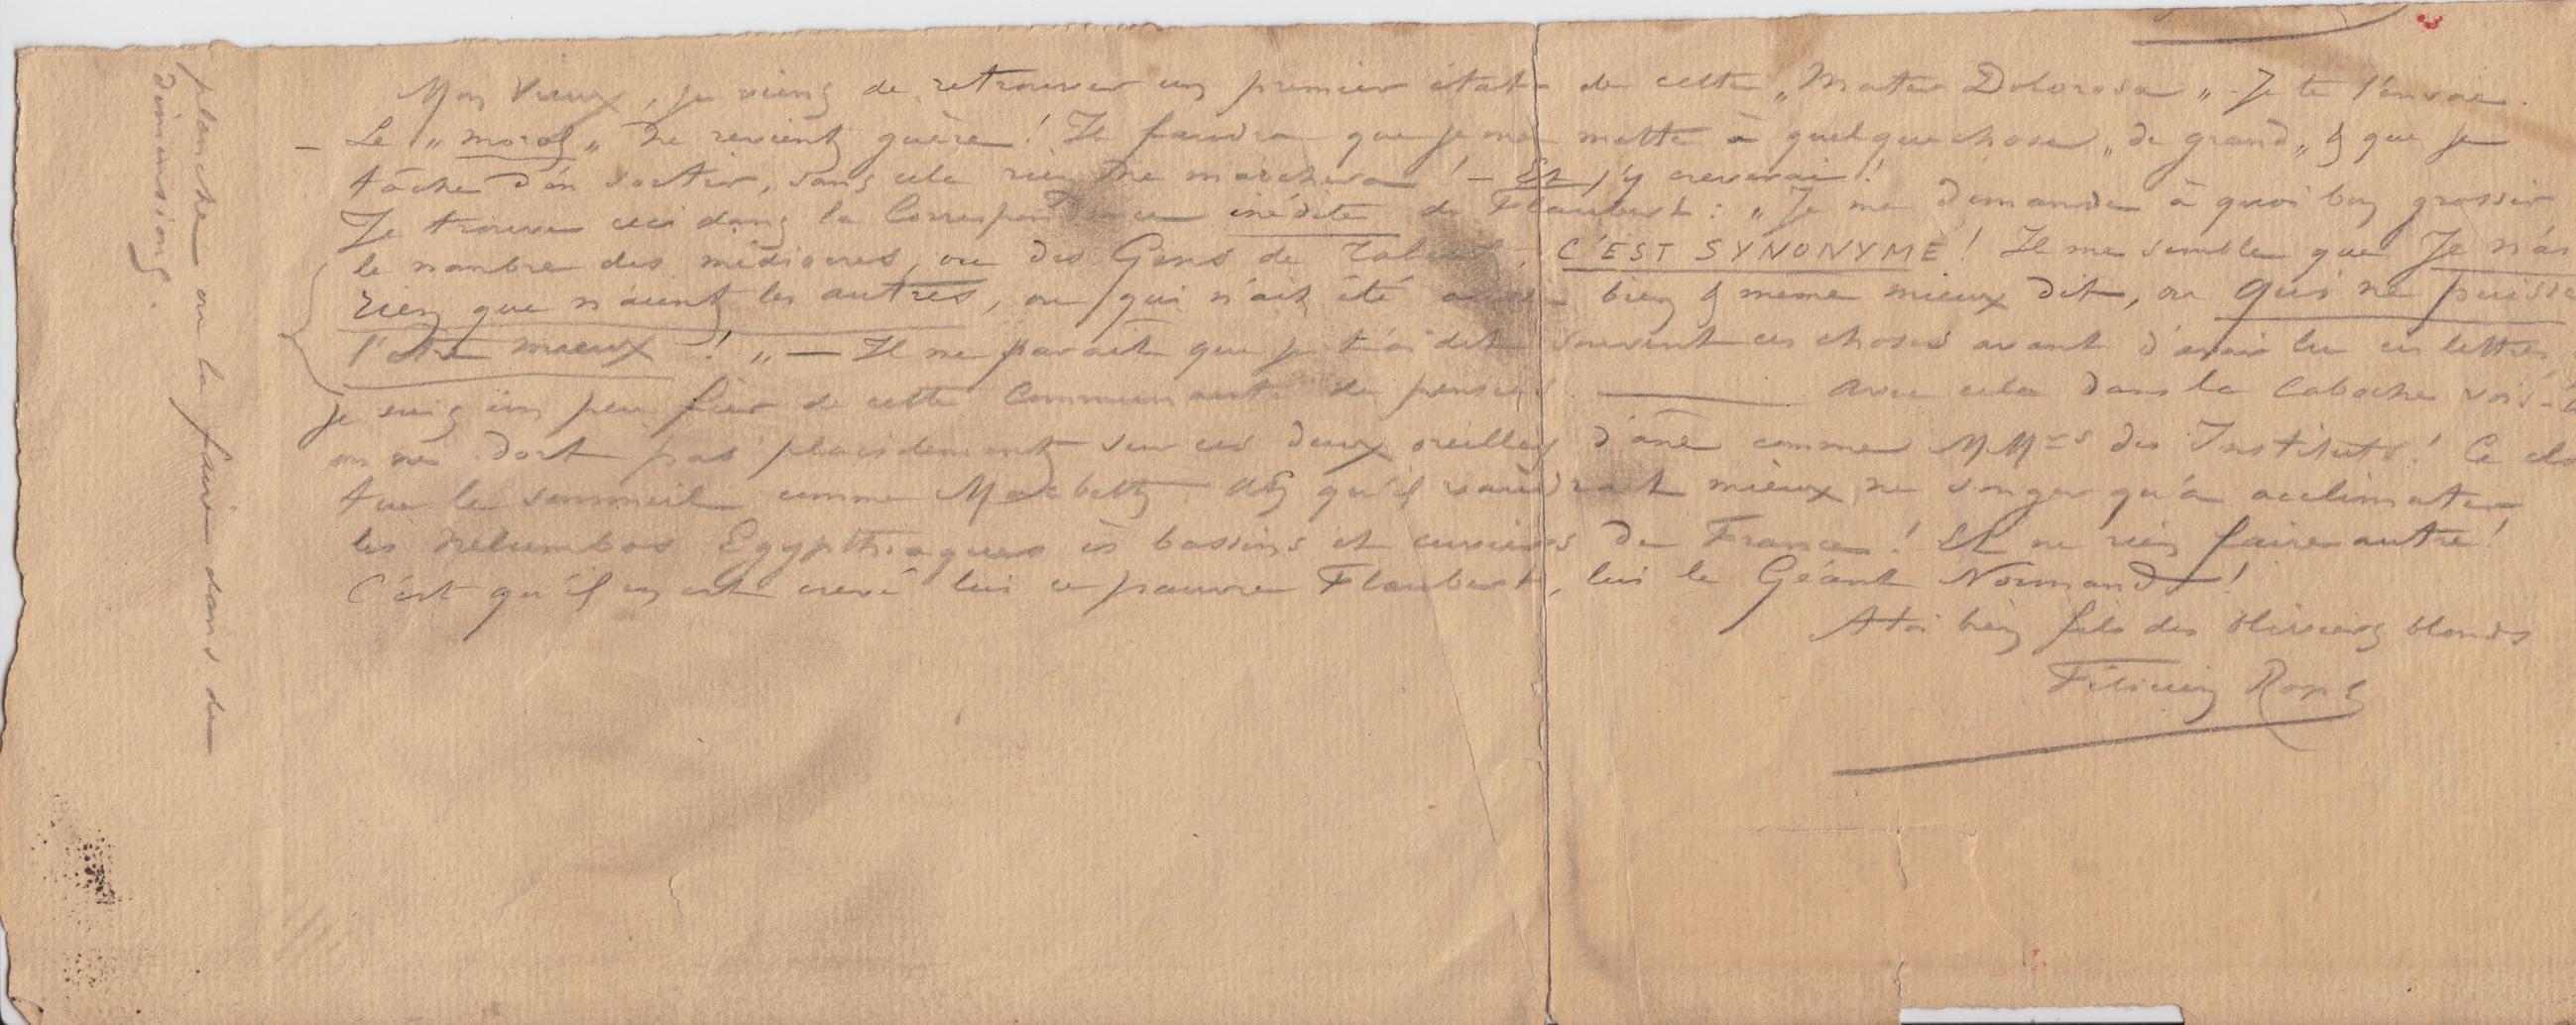 Mon Vieux, je viens de retrouver un premier état de cette „Mater Dolorosa„ - Je te l'envoie.
- Le „moral„ ne revient guère! Il faudra que je me mette à quelque chose „de grand„ & que je
tâche d'en sortir, sans cela rien ne marchera! - Et j'y creverai!
Je trouve ceci dans la Correspondance inédite de Flaubert: „Je me demande à quoi bon grossir
le nombre des médiocres, ou des Gens de Talent, C'EST SYNONYME! Il me semble que Je n'ai
rien que n'aient les autres, ou qui n'ait été aussi bien & même mieux dit, ou qui ne puisse
l'être mieux!„ — Il me parait que je t'ai dit souvent ces choses avant d'avoir lu ces lettres,
je suis un peu fier de cette Communauté de pensées. ——— Avec cela dans la Caboche vois-
on ne dort pas placidement sur ces deux oreilles d'âne comme MMrs des Instituts! Ce
tue le sommeil comme Macbeth qu'il vaudrait mieux ne songer qu'à acclimater
les nelumbos Egypthiaques ès bassins et cuviers de France! Et ne rien faire autre!
C'est qu'il en est crevé lui ce pauvre Flaubert, lui le Géant Normand!
A toi bien fils des oliviers blonds
Félicien Rops
planche ou la faire dans de
dimensions.